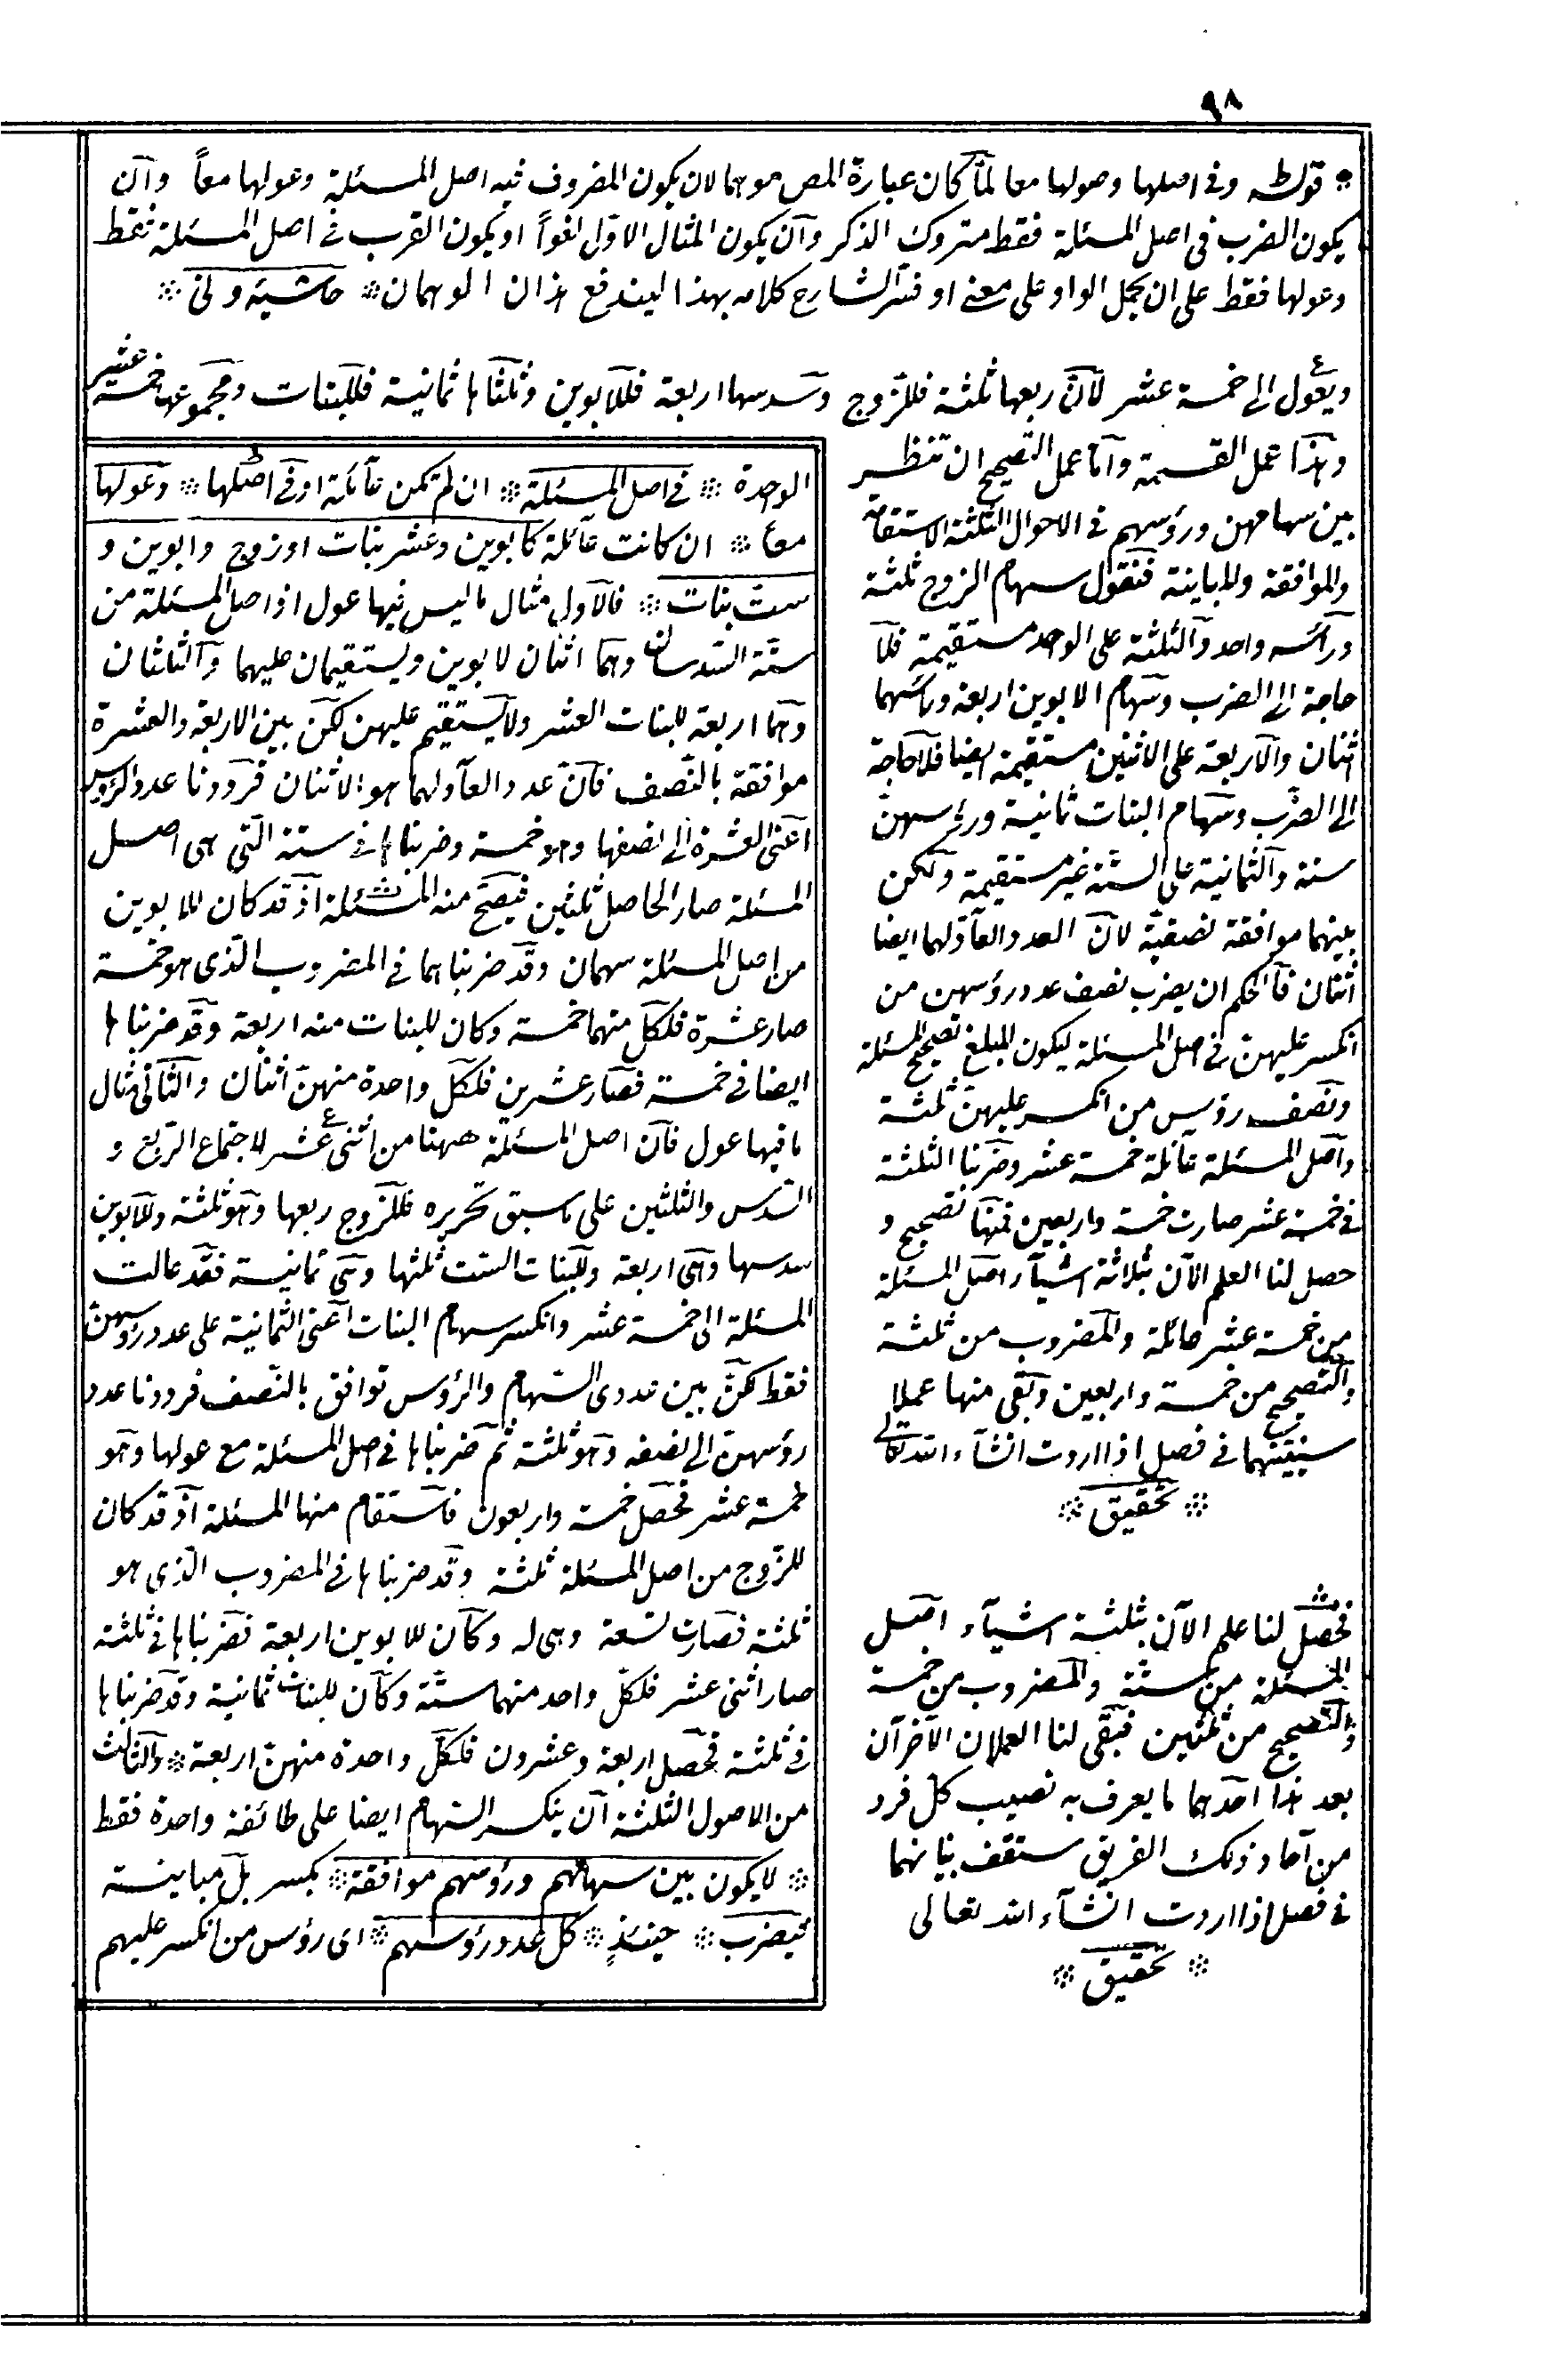 ٩٨
قوله وفى اصلها وعولها معا لما كان عبارة المص موهما لان يكون المضروب فيه اصل المسئلة وعولها معاً وان
يكون الضرب فى اصل المسئلة فقط متروك الذكر وان يكون المثال الاول لغواً او يكون الضرب فى اصل المسئلة فقط
وعولها فقط على ان يجعل الواو على معنى او فسر الشارح كلامه بهذا ليندفع هذان الوهمان ※ حاشية ولى ※
ويعول الى خمسة عشر لان ربعها ثلثة فللزوج وسدسها اربعة فللابوين وثلثاها ثمانية فللبنات ومجموعها خمسة عشر
وهذا عمل القسمة واما عمل التصحيح ان تنظر
بين سهامهن ورؤسهم فى الاحوال الثلثة الاستقامة
والموافقة والمباينة فنقول سهام الزوج ثلثة
ورأسه واحد والثلثة على الوحد مستقيمة فلا
حاجة الى الضرب وسهام الابوين اربعة ورأسهما
اثنان والاربعة على الاثنين مستقيمة ايضا فلا حاجة
الى الضرب وسهام البنات ثمانية ورؤسهن
ستة والثمانية على الستة غير مستقيمة ولكن
بينهما موافقة نصفية لان العدد العاد لهما ايضا
اثنان فالحكم ان يضرب نصف عدد رؤسهن من
انكسر عليهن فى اصل المسئلة ليكون المبلغ تصحيح المسئلة
ونصف رؤس من انكسر عليهن ثلثة
واصل المسئلة عائلة خمسة عشر وضربنا الثلثة
فى خمسة عشر صارت خمسة واربعين فمنها تصحيح و
حصل لنا العلم الآن بثلاثة اشيآء اصل المسئلة
من خمسة عشر عائلة والمضروب من ثلثة
والتصحيح من خمسة واربعين وبقى منها عملا
سنبينهما فى فصل اذا اردت انشآء الله تعالى
※ تحقيق ※
فحصل لنا علم الآن بثلثة اشيآء اصل
المسئلة من ستة والمضروب من خمسة
والتصحيح من ثلثين فبقى لنا العملان الآخران
بعد هذا احدهما ما يعرف به نصيب كل فرد
من آحاد ذلك الفريق ستقف بيانهما
فى فصل اذا اردت انشآء الله تعالى
※ تحقيق ※
الوحدة ※ فى اصل المسئلة ※ ان لم تكن عآئلة او فى اصلها ※ وعولها
معا ※ ان كانت عآئلة كابوين وعشر بنات او زوج وابوين و
ست بنات ※ فالاول مثال ما ليس فيها عول اذ اصل المسئلة من
ستة السدسان وهما اثنان لابوين ويستقيمان عليهما والثلثان
وهما اربعة للبنات العشر ولا يستقيم عليهن لكن بين الاربعة والعشرة
موافقة بالنصف فان عدد العاد لهما هو الاثنان فرددنا عدد الرؤس
اعنى العشرة الى نصفها وهو خمسة وضربناها فى ستة التى هى اصل
المسئلة صار الحاصل ثلثين فيصح منه المسئلة اذ قد كان للابوين
من اصل المسئلة سهمان وقد ضربناهما فى المضروب الذى هو خمسة
صار عشرة فلكل منهما خمسة وكان للبنات منه اربعة وقد ضربناها
ايضا فى خمسة فصار عشرين فلكل واحدة منهن اثنان والثانى مثال
ما فيها عول فان اصل المسئلة ههنا من اثنى عشر لاجتماع الربع و
السدس والثلثين على ما سبق تحريره فللزوج ربعها وهو ثلثة وللابوين
سدسها وهى اربعة وللبنات الست ثلثها وهى ثمانية فقد عالت
المسئلة الى خمسة عشر وانكسر سهام البنات اعنى الثمانية على عدد رؤسهن
فقط لكن بين عددى السهام والرؤس توافق بالنصف فرددنا عدد
رؤسهن الى نصفه وهو ثلثة ثم ضربناها فى اصل المسئلة مع عولها وهو
خمسة عشر فحصل خمسة واربعون فاستقام منها المسئلة اذ قد كان
للزوج من اصل المسئلة ثلثة وقد ضربناها فى المضروب الذى هو
ثلثة فصارت تسعة وهى له وكان للابوين اربعة فضربناها فى ثلثة
صار اثنى عشر فلكل واحد منهما ستة وكان للبنات ثمانية وقد ضربناها
فى ثلثة فحصل اربعة وعشرون فلكل واحدة منهن اربعة ※ والثالث
من الاصول الثلثة ان ينكسر السهام ايضا على طائفة واحدة فقط
※ لا يكون بين سهامهم ورؤسهم موافقة ※ بكسر بل مباينة
فيضرب ※ حينئذٍ ※ كل عدد رؤسهم ※ اى رؤس من انكسر عليهم